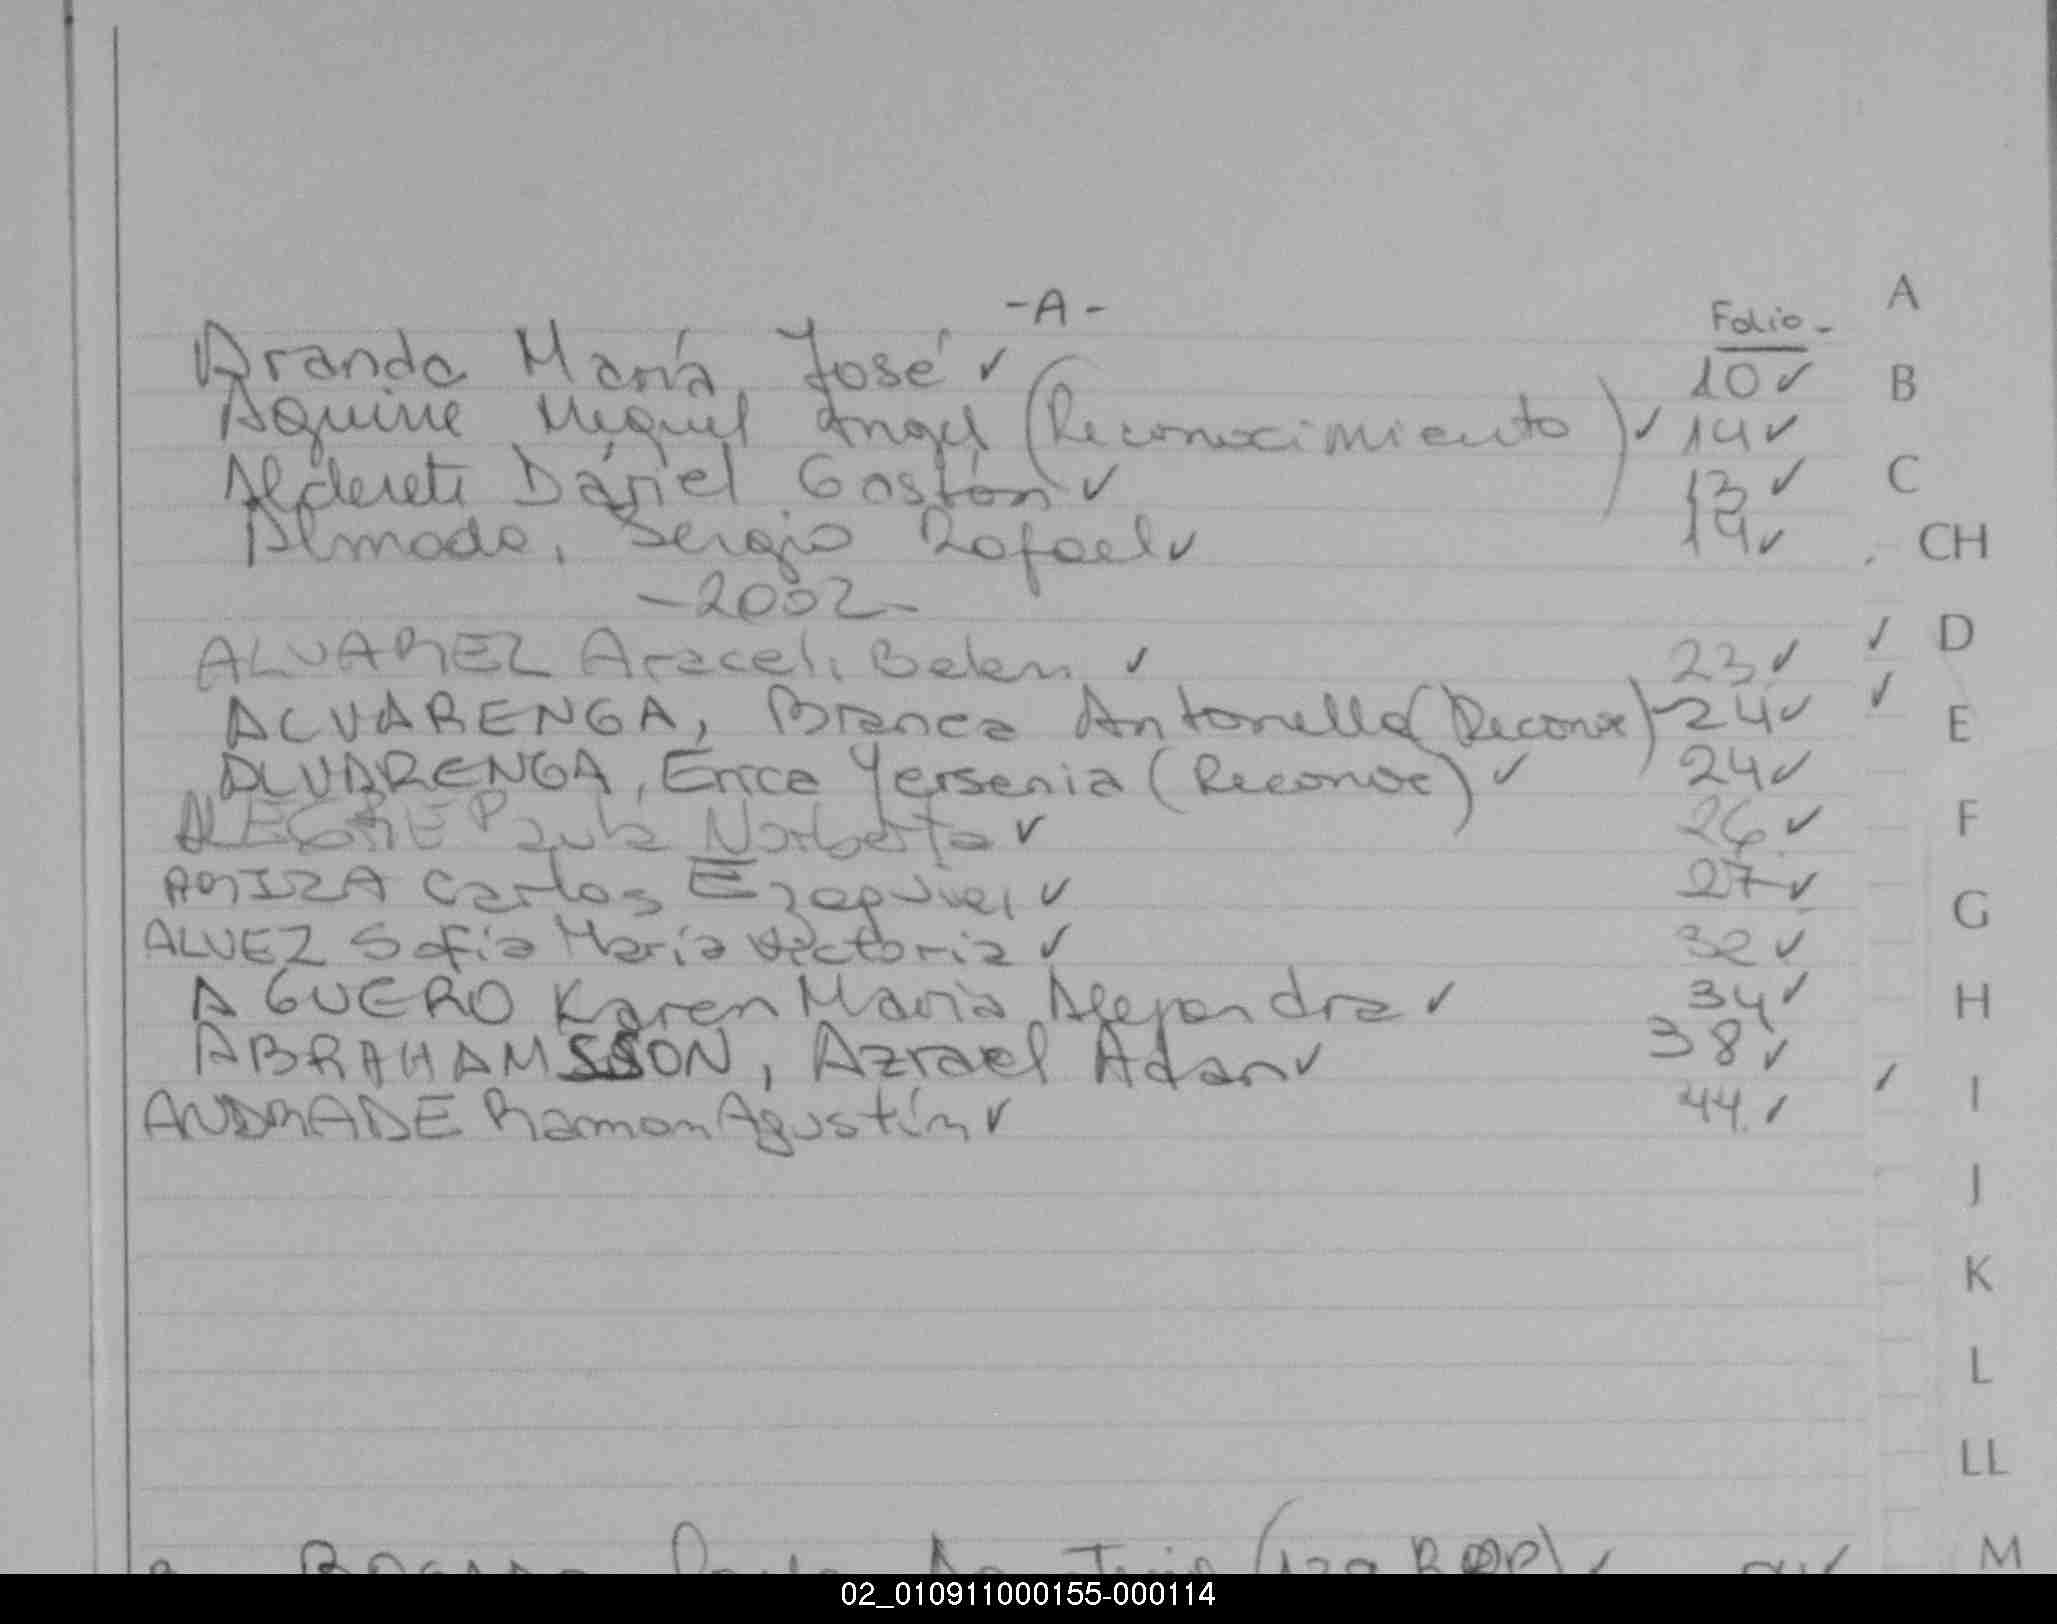 -A-
Folio-
Aranda María José ✓ 10 ✓
Aquine Miguel Angel (Reconocimiento) ✓ 14 ✓
Alderete Dániel Gastón ✓ 13 ✓
Almada, Sergio Rafael ✓ 19 ✓
-2002-
ALVAREZ Araceli Belen ✓ 23 ✓ ✓
ALVARENGA, Bianca Antonella (Reconoc) 24 ✓ ✓
ALVARENGA, Erica Yersenia (Reconoc) ✓ 24 ✓
ALEGRE Paula Norberta ✓ 26 ✓
Carlos Ezequiel ✓ 27 ✓
ALVEZ Sofia María Victoria ✓ 32 ✓
AGUERO Karen Maria Alejandra ✓ 34 ✓
ABRAHAMSSON, Azrael Adan ✓ 38 ✓
ANDRADE Ramon Agustín ✓ 44 ✓ ✓
A
B
C
CH
D
E
F
G
H
I
J
K
L
LL
M
02_010911000155-000114